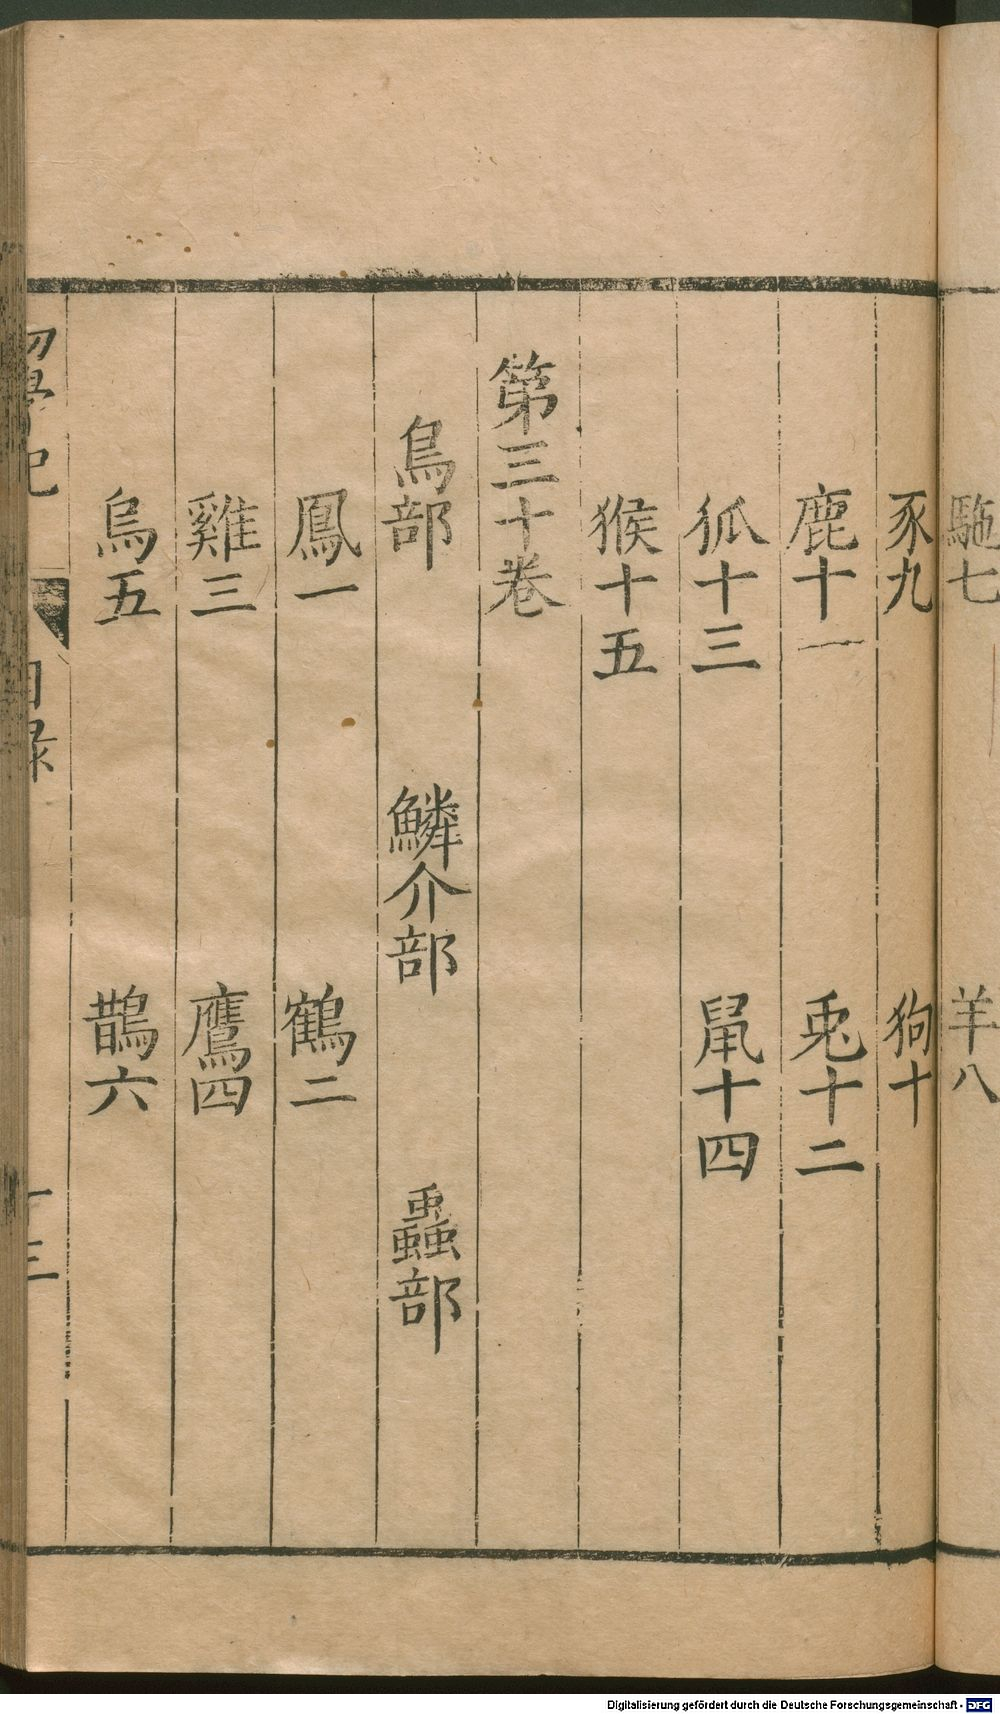 駞七 羊八
豕九 狗十
鹿十一 兎十二
狐十三 鼠十四
猴十五
第三十卷
鳥部 鱗介部 蟲部
鳳一 鶴二
雞三 鷹四
烏五 鵲六
初學記 目録 十三
Digitalisierung gefördert durch die Deutsche Forschungsgemeinschaft - DFG